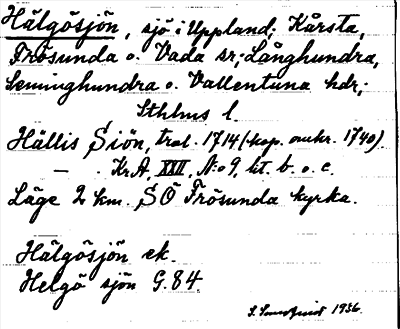 Hälgösjön, sjö i Uppland; Kårsta,
Frösunda o. Vada sr; Långhundra,
Seminghundra o. Vallentuna hdr;
Sthlms l.
Hällis Siön, trol. 1714 (kop. omkr. 1740).
— . Kr.A. XXII, N:o 9, lit. b. o. c.
Läge 2 km. SÖ Frösunda kyrka.
Hälgösjön ek.
Helgö sjön G. 84.
S. 1936